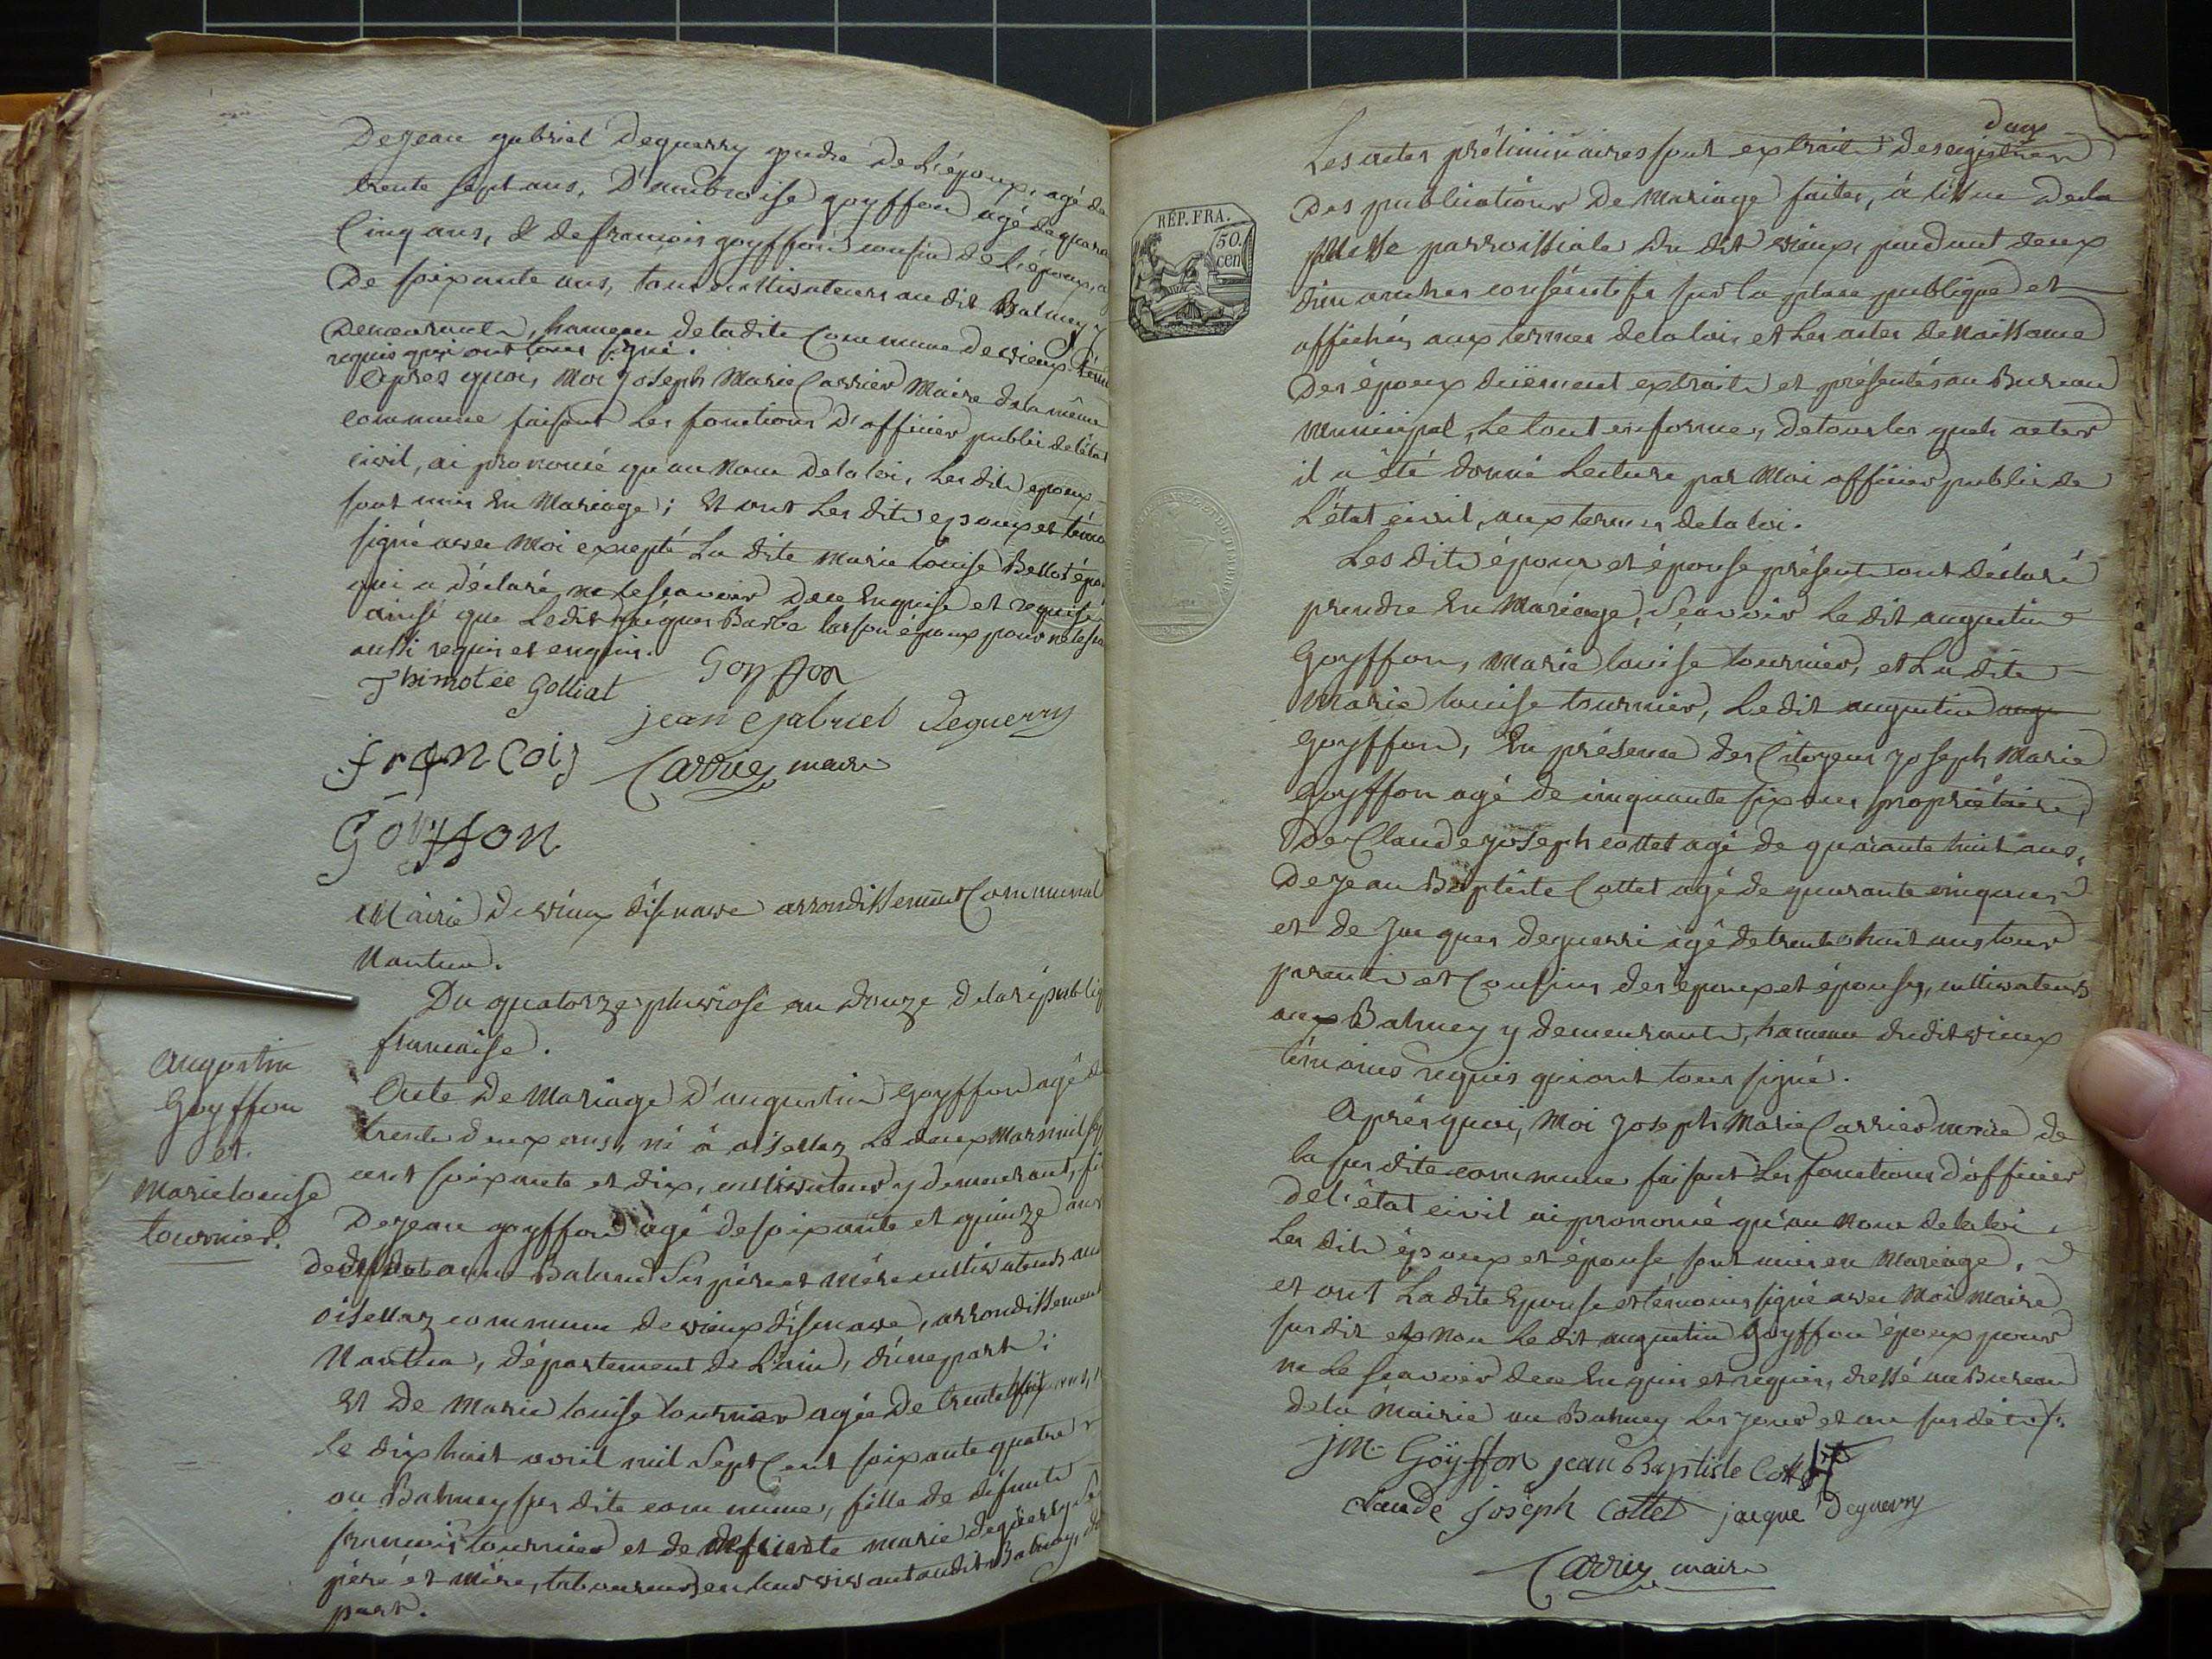 De Jean gabriel Deguerry gendre De L'époux, agé de
trente sept ans, D'ambroise goyffon agé de quara
Cinq ans, & de françois goyffon cousin de L'époux, a
De soixante ans, tous cultivateurs au dit Balmey y
Demeurants, hameau de la dite Commune de vieux, tém
requis qui ont tous signé.
Après quoi, Moi Joseph Marie Carrier Maire de la même
commune faisant Les fonctions D'officier public de l'état
civil, ai prononcé qu'au Nom De la loi, Les dits epoux
sont unis En Mariage; Et ont Les dits epoux et témo
signé avec Moi excepté La dite Marie Louise Bellot épou
qui a déclaré ne le scavoir De ce Enquise et requise
ainsi que Le dit Jacques Barbe son époux pour ne le sca
aussi requis et enquis.
Thimotée Golliat Goyffon
jean Gabriel Deguerry
françois Carrier maire
Goyffon
Mairie De vieux d'isenave arrondissement Communal
Nantua.
Du quatorze pluviose an Douze De la républiq
francaise.
augustin
Goyffon
et
Marie louise
tournier.
Acte De Mariage D'augustin Goyffon agé de
trente deux ans, né à oisellaz Le deux Mars mil sep
cent soixante et dix, cultivateur y demeurant, fi
De Jean goyffon agé de soixante et quinze ans
et anne Baland Ses père et Mère cultivateurs au
oisellaz commune de vieux d'isenave, arrondissement
Nantua, département de L'ain, d'une part;
Et De Marie louise tournier agée De trente ans,
Le dix huit avril mil Sept Cent soixante quatre
au Balmey sus dite commune, fille de défunts
françois tournier et de défunte marie deguerry Se
père et Mère, laboureurs en leur vivant au dit Balmey, d
part.
RÉP. FRA.
50.
cen
Les actes préliminaires sont extraits des registres
Des publications De Mariage faites, à L'issue De la
Messe parroissiale du dit vieux, pendant deux
dimanches consécutifs sur la place publique et
affichés aux termes de la loi, et Les actes de Naissance
Des époux duëment extraits et présentés au Bureau
municipal, Le tout en forme, de tous les quels actes
il a été donné Lecture par Moi officier public de
L'état civil, aux termes de la loi.
Les dits époux et épouse présents ont déclaré
prendre En Mariage, Sçavoir Le dit augustin
Goyffon, Marie louise tournier, et La dite
Marie louise tournier, Le dit augustin
Goyffon, En présence des Citoyens Joseph Marie
Goyffon agé de cinquante six ans propriétaire,
De Claude Joseph cottet agé de quarante huit ans,
De Jean Baptiste Cottet agé de quarante cinq ans
et de Jacques deguerri agé de trente huit ans tous
parents et Cousins des époux et épouse, cultivateurs
aux Balmey y demeurants, hameau du dit vieux
témoins requis qui ont tous signé.
Après quoi, Moi Joseph Marie Carrier maire de
la sus dite commune faisant Les fonctions d'officier
de l'état civil ai prononcé qu'au Nom de la loi,
Les dits époux et épouse sont unis en Mariage,
et ont La dite Epouse et témoins signé avec Moi Maire
sus dit et Non Le dit augustin Goyffon époux pour
ne Le scavoir de ce Enquis et requis, dressé au Bureau
de la Mairie au Balmey Les jour et an sus dits.
jM. Goÿffon jean Baptiste Cottet
Claude joseph Cottet jacque Deguerry
Carrier maire